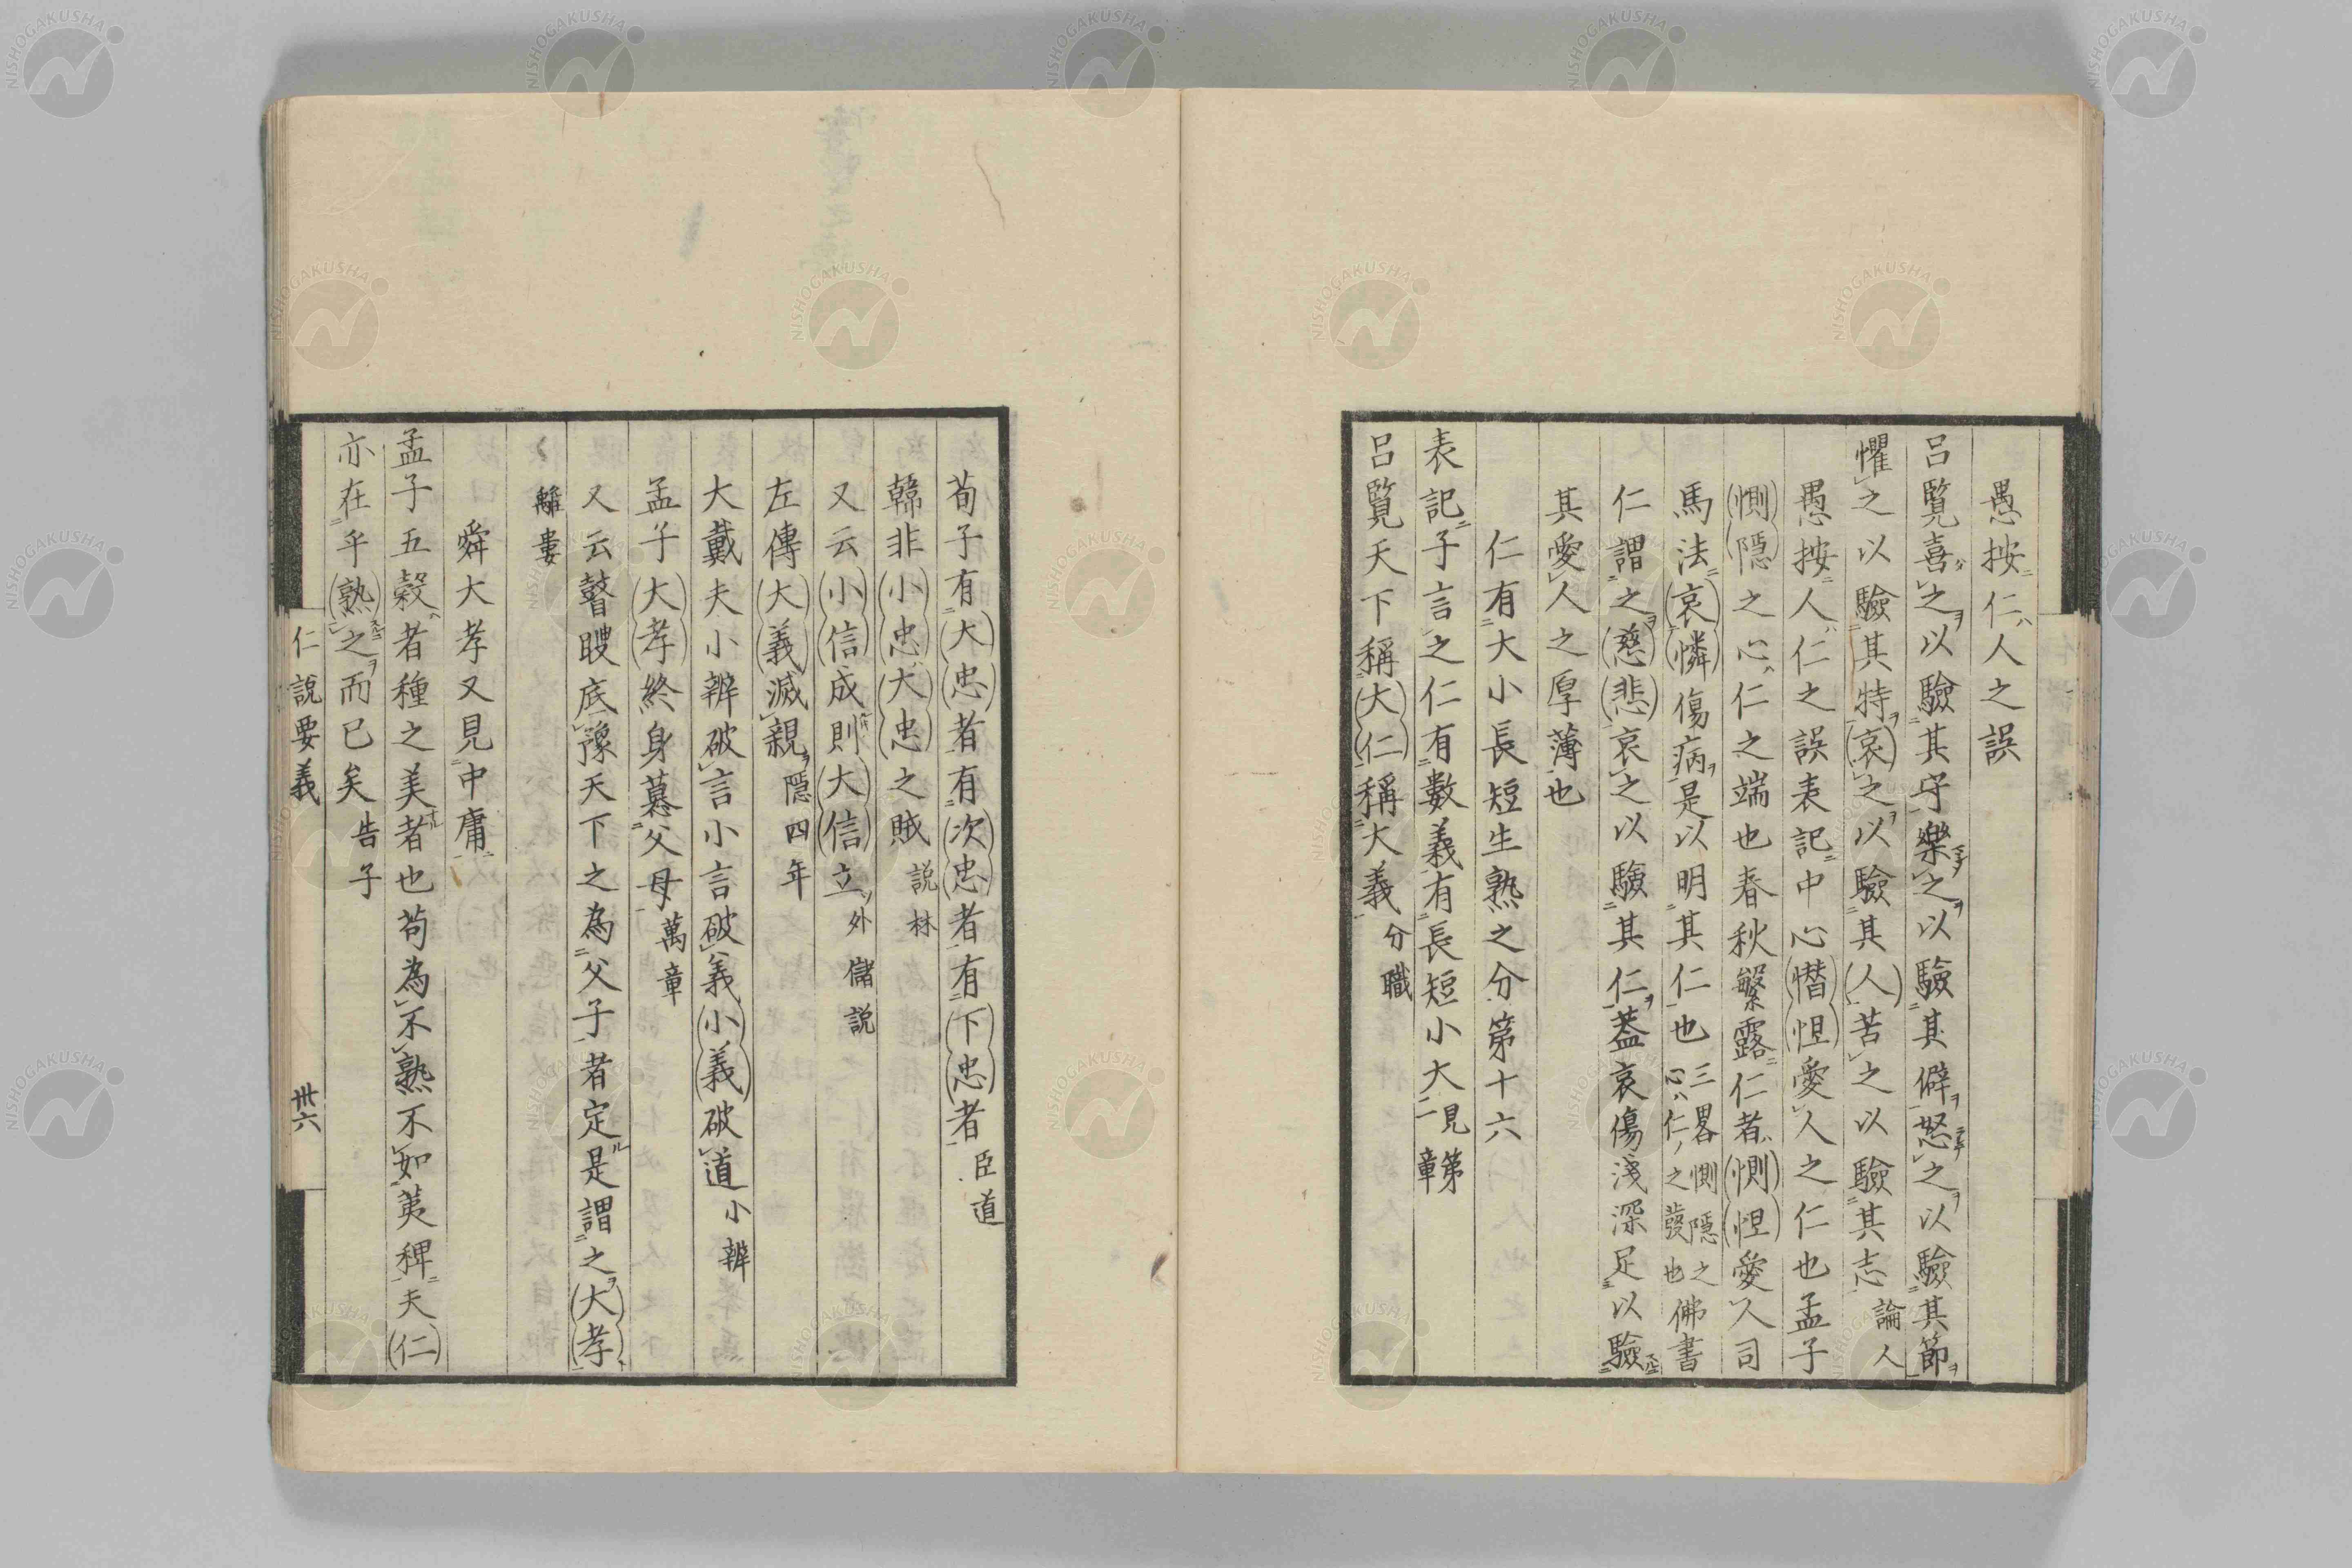 愚按仁人之誤
呂覧喜之以驗其守樂之以驗其僻怒之以驗其節
懼之以驗其特哀之以驗其人苦之以驗其志 論人
愚按人仁之誤表記中心憯怛愛人之仁也孟子
惻隠之心仁之端也春秋繁露仁者惻怛愛人司
馬法哀憐傷病是以明其仁也 三畧惻隠之心仁之發也 佛書
仁謂之慈悲哀之以驗其仁葢哀傷淺深足以驗
其愛人之厚薄也
仁有大小長短生熟之分第十六
表記子言之仁有數義有長短小大 見第二章
呂覧天下稱大仁稱大義 分職
荀子有大忠者有次忠者有下忠者 臣道
韓非小忠大忠之賊 説林
又云小信成則大信立 外儲説
左傳大義滅親 隠四年
大戴夫小辨破言小言破義小義破道 小辨
孟子大孝終身慕父母 萬章
又云瞽瞍底豫天下之為父子者定是謂之大孝
離婁
舜大孝又見中庸
孟子五穀者種之美者也苟為不熟不如荑稗夫仁
亦在乎熟之而已矣 告子
仁說要義
卅六
NISHOGAKUSHA